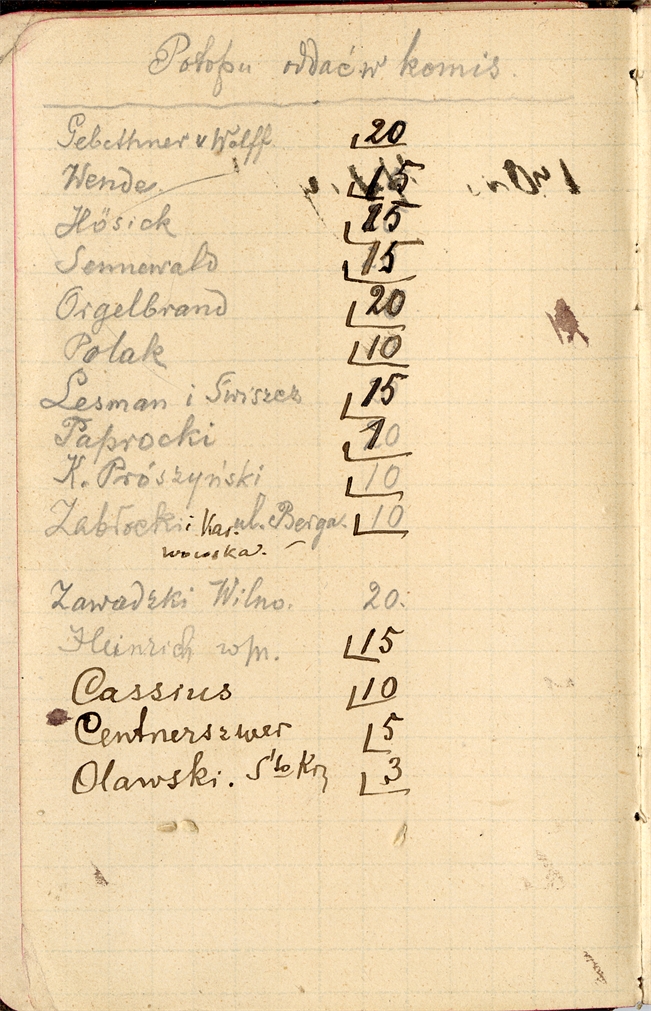 Potopu oddać w komis
Gebethner & Wolff 20
Wende. 15
Hösick 25
Sennewald 15
Orgelbrand 20
Polak 10
Lesman i Świszcz 15
Paprocki
K. Prószyński 10
Zabłocki i Kar. ul. Berga. 10
wowska.
Zawadzki Wilno. 20.
Heinrich 15
Cassius 10
Centnerszwer 5
Olawski. Sto Krz 3